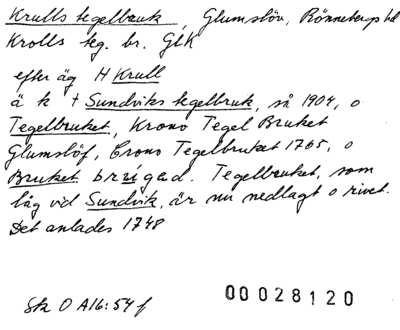 Krulls tegelbruk, Glumslöv, Rönnebergs hd
Krolls teg. br. GlK
efter äg H Krull
ä k + Sundviks tegelbruk, så 1904, o
Tegelbruket, Krono Tegel Bruket
Glumslöf, Crono Tegelbruket 1765, o
Bruket brusigad. Tegelbruket, som
låg vid Sundvik, är nu nedlagt o rivet.
Det anlades 1748
Sk O A16:54 f
00028120